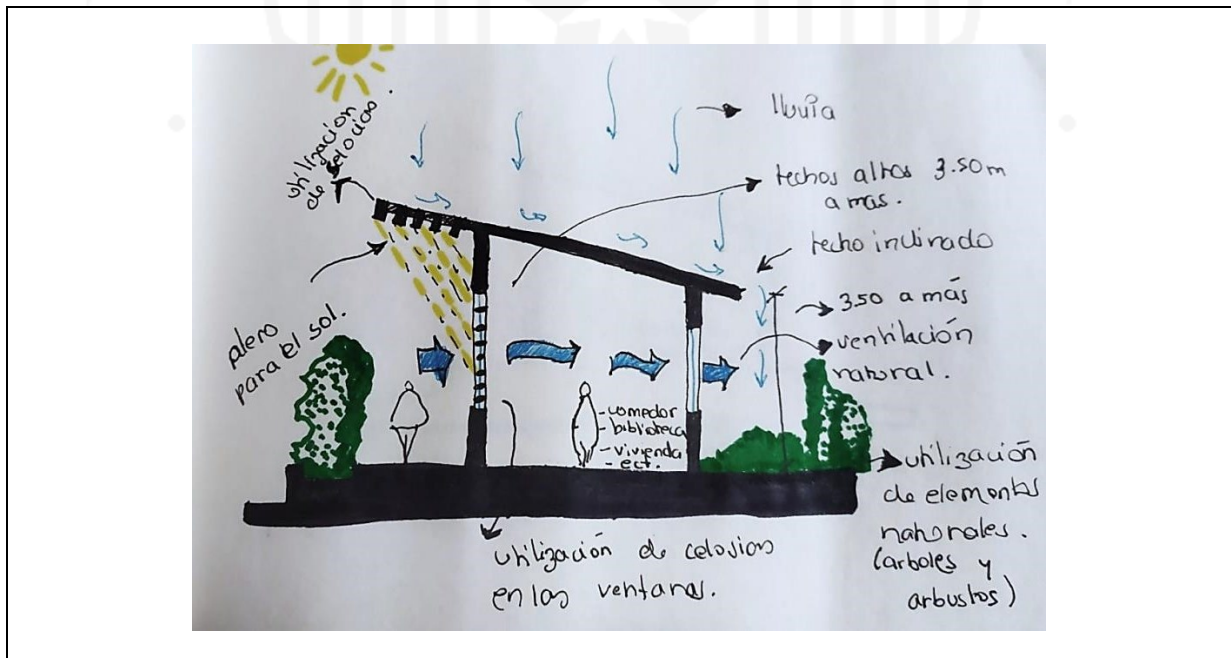 utilización
de selocias.
lluvia
techos altos 3.50m
a mas.
techo inclinado
3.50 a más
ventilación
natural.
alero
para el sol.
-comedor
-biblioteca
-vivienda
-ect.
utilización
de elementos
naturales.
(arboles y
arbustos)
utilización de celosias
en las ventanas.